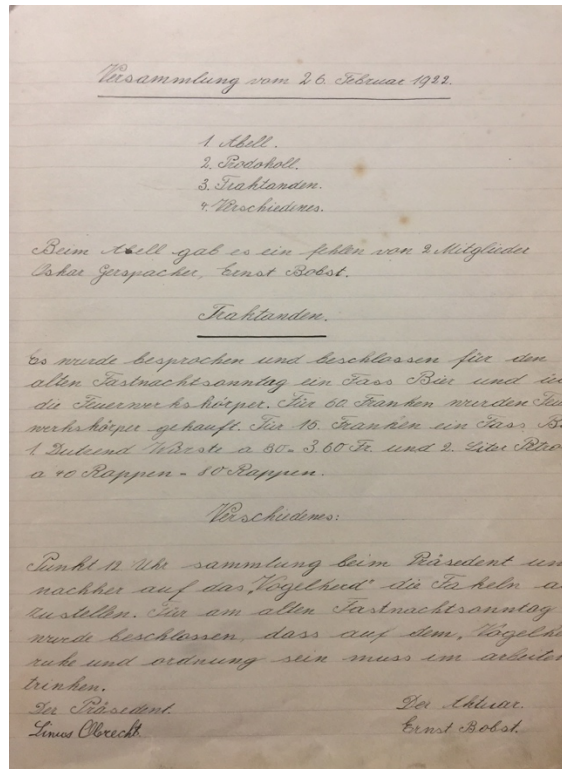 Versammlung vom 26. Februar 1922.
1. Abell.
2. Prodokoll.
3. Traktanden.
4. Verschiedenes.
Beim Abell gab es ein fehlen von 2 Mitglieder
Oskar Gerspacher, Ernst Bobst.
Traktanden.
Es wurde besprochen und beschlossen für den
alten Fastnachtsonntag ein Fass Bier und
die Feuerwerkskörper. Für 60 Franken wurden
werkskörper gekauft. Für 15 Franken ein Fass
1 Dutzend Würste a 30 = 3.60 Fr. und 2. Liter
a 40 Rappen = 80 Rappen.
Verschiedenes:
Punkt 12 Uhr sammlung beim Präsedent
nachher auf das „Vogelherd" die Fakeln
zustellen. Für am alten Fastnachtsonntag
wurde beschlossen, dass auf dem
ruhe und ordnung sein muss im
trinken.
Der Präsedent. Der Aktuar.
Linus Obrecht. Ernst Bobst.